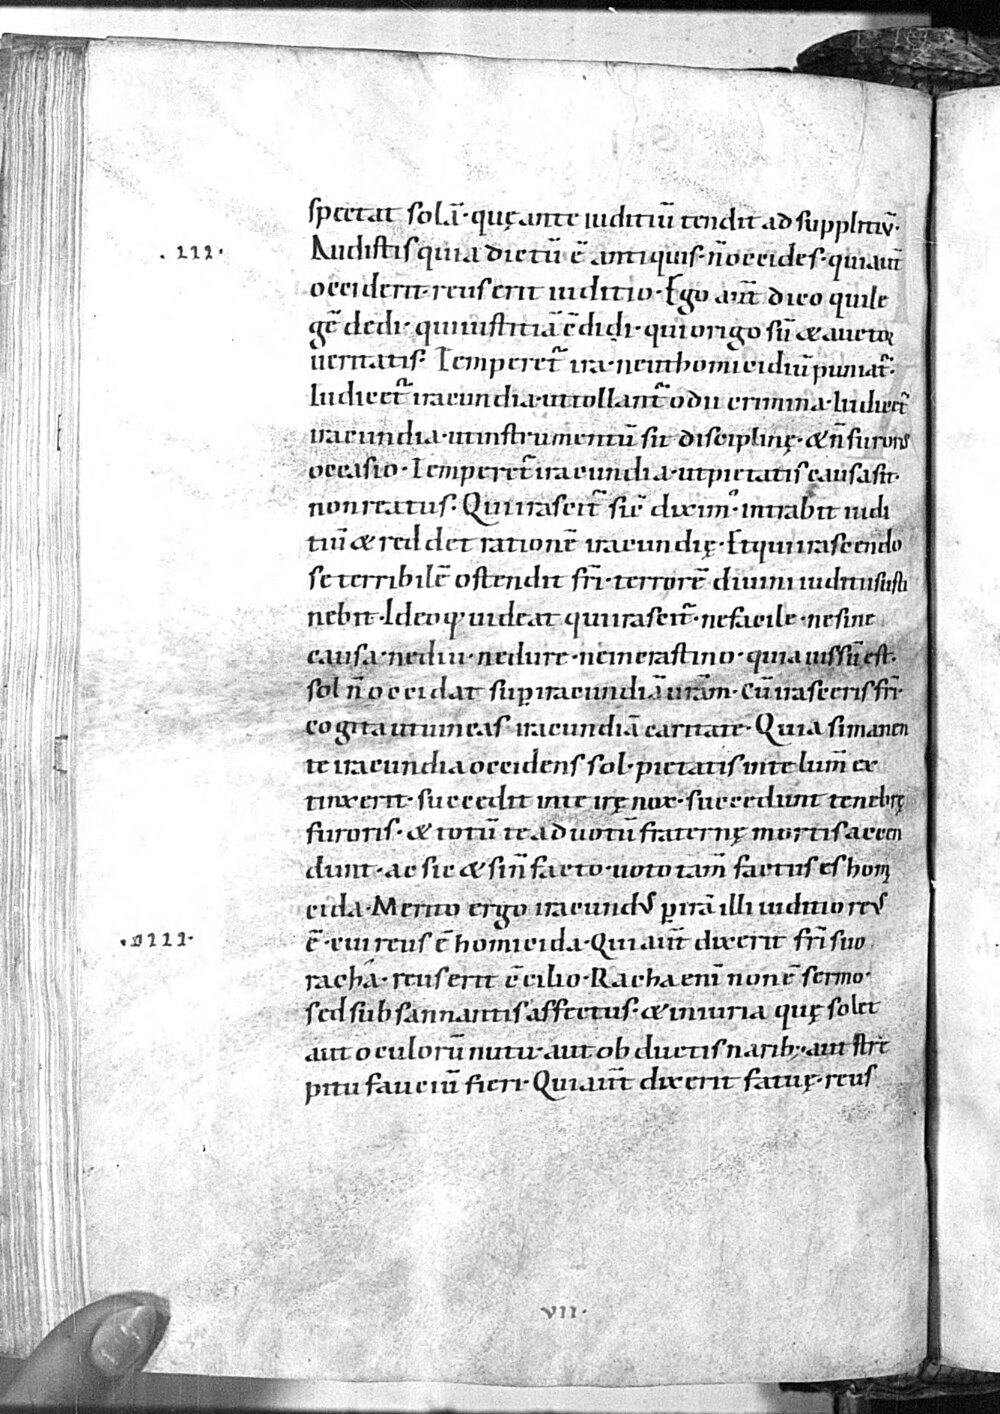 spectat solā· quę ante iuditiū tendit ad supplitiū·
.III· Audistis quia dictū ē antiquis· n̄ occides· qui aūt
occiderit· reus erit iuditio· Ego aūt dico qui le
gē dedi· qui iustitiā ēdidi· qui origo sū & auctor
ueritatis· Temperet̄ ira· ne in homicidiū puniat̄·
Iudicet̄ iracundia· ut tollant̄ odii crimina· Iudicet̄
iracundia· ut instrumentū sit disciplinę· & n̄ furoris
occasio· Temperet̄ iracundia· ut pietatis causa sit·
non reatus· Qui irascit̄ sic̄ dixim᾿· intrabit iudi
tiū & reddet rationē iracundię· Et qui irascendo
se terribilē ostendit fr̄i· terrorē diuini iuditii susti
nebit· Ideoq; uideat qui irascit̄· ne facile· ne sine
causa· ne diu· ne dure· ne in crastino· quia iussū est·
sol n̄ occidat sup iracundiā urām· Cū irasceris fr̄i·
cogita ut uincas iracundiā caritate· Quia si manen
te iracundia occidens sol· pietatis in te lum̄ ex
tinxerit· succedit in te irę nox· succedunt tenebrę
furoris· & totū te ad uotū fraternę mortis accen
dunt· ac sic & sin̄ facto· uoto tam̄ factus es homi
cida· Merito ergo iracundus p irā illi iuditio reus
.VIIII· ē· cui reus ē homicida· Qui aūt dixerit fr̄i suo
racha· reus erit c̄cilio· Racha eni̅ non ē sermo·
sed subsannantis affectus· & iniuria quę solet
aut oculorū nutu· aut obductis narib;· aut stre
pitu fauciū fieri· Qui aūt dixerit fatuę· reus
VII·